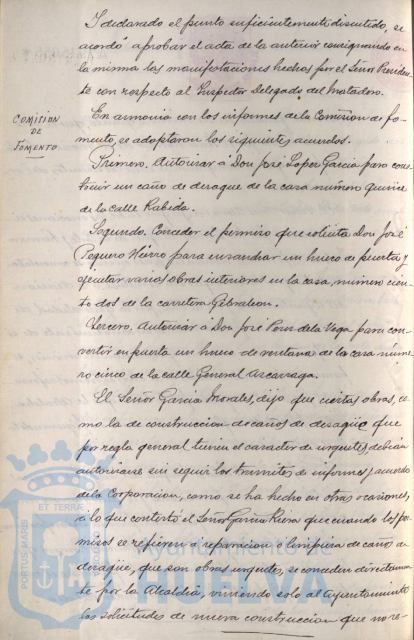 I declarado el punto suficientemente discutido, se
acordó aprobar el acta de la anterior consignando en
la misma las manifestaciones hechas por el Señor Presiden-
te con respecto al Inspector Delegado del Matadero.
COMISION
DE
FOMENTO
En armonia con los informes de la Comision de fo-
mento, se adoptaron los siguientes acuerdos.
Primero. Autorizar á Don José Lopez Garcia para cons-
truir un caño de desague de la casa numero quince
de la calle Rabida.
Segundo. Conceder el permiso que solicita Don José
Peguero Hierro para ensanchar un hueco de puerta y
ejecutar varias obras interiores en la casa, numero cien-
to dos de la carretera Gibraleon.
Tercero. Autorizar á Don José Perez de la Vega para con-
vertir en puerta un hueco de ventana de la casa núme-
ro cinco de la calle General Azcarraga.
El Señor Garcia Morales, dijo que ciertas obras, co-
mo la de construccion de caños de desagüe que
por regla general tienen el caracter de urgentes, debian
autorizarse sin seguir los tramites de informes y acuerdo
de la Corporacion, como se ha hecho en otras ocasiones,
á lo que contestó el Señor Garcia Riero que cuando los per-
misos se refieren á reparacion ó limpieza de caños de
desagüe, que son obras urgentes, se conceden directamen-
te por la Alcaldia, viniendo solo al Ayuntamiento
las solicitudes de nueva construccion que no re-
PORTUS MARIS
ET TERRÆ
Ayuntamiento
HUELVA